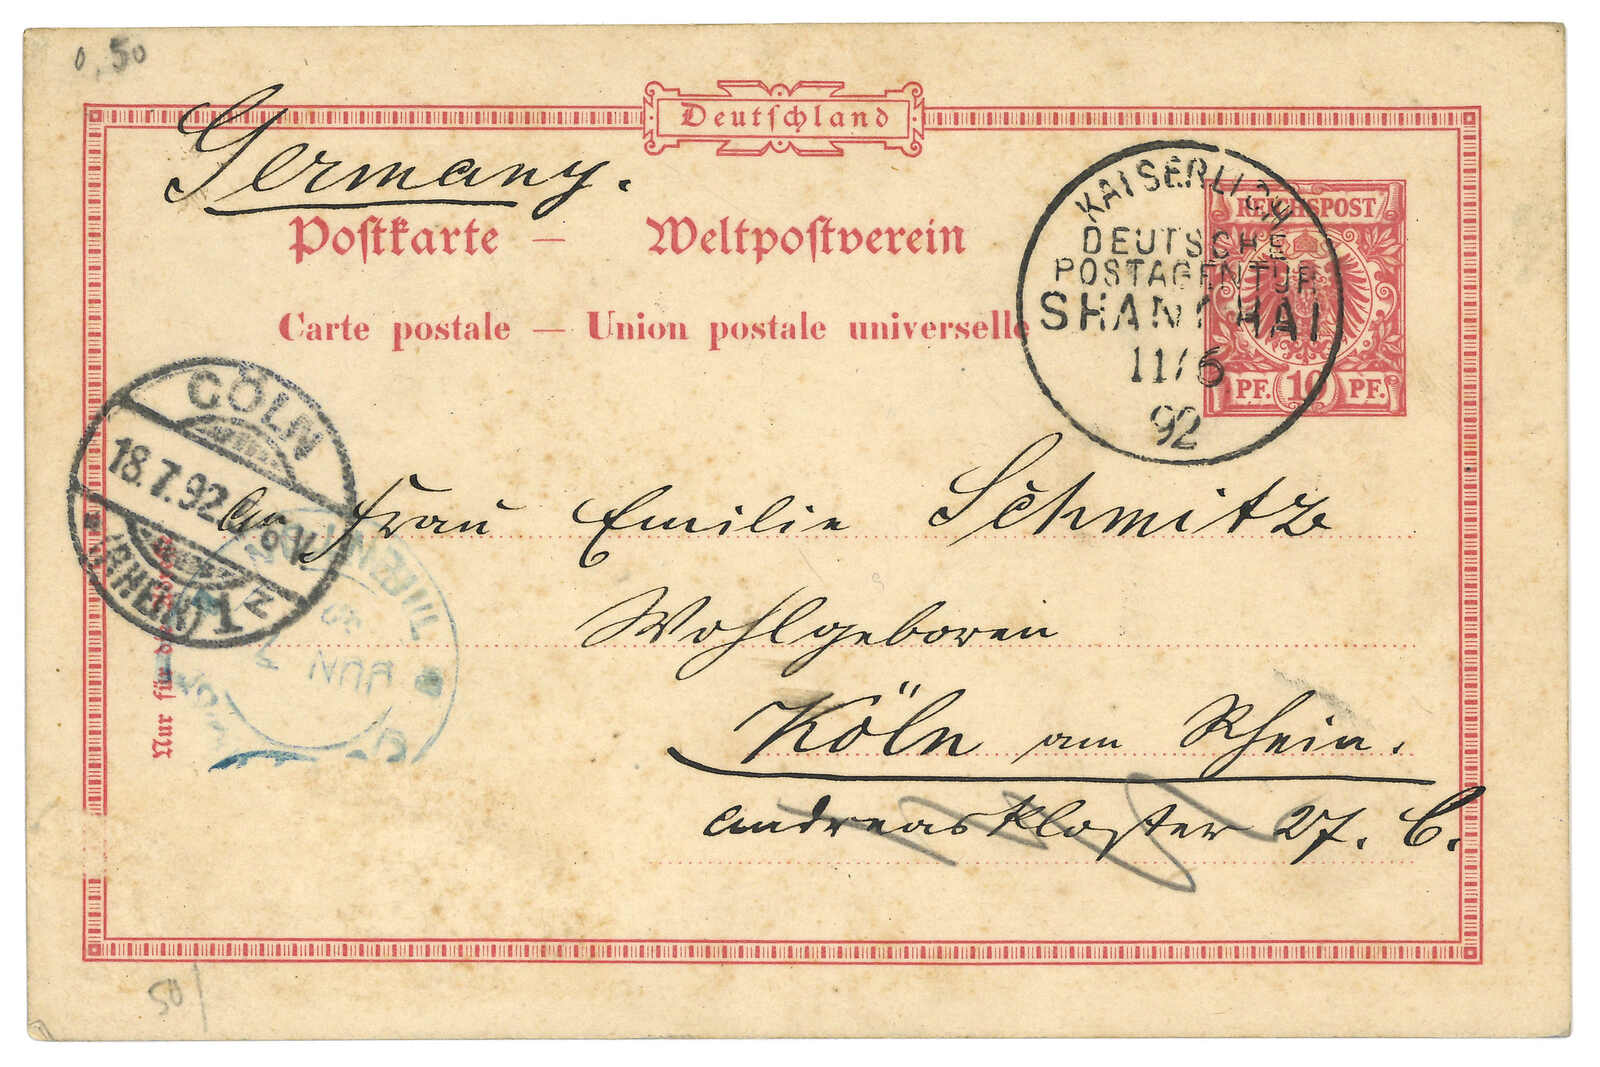 0,50
Deutschland
Germany.
Postkarte — Weltpostverein
Carte postale — Union postale universelle
KAISERLICH
DEUTSCHE
POSTAGENTUR
SHANGHAI
11/6
92
REICHSPOST
PF. 10 PF.
CÖLN
18.7.92
(RHEIN) 1 Z
An Frau Emilie Schmitz
Wohlgeboren
Köln am Rhein.
Andreaskloster 27. C.
Nur für
50/